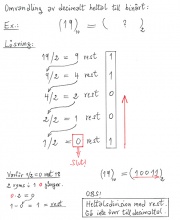 Omvandling av decimalt heltal till binärt:
Ex.: (19)₁₀ = ( ? )₂
Lösning:
19/2 = 9 rest 1
9/2 = 4 rest 1
4/2 = 2 rest 0
2/2 = 1 rest 0
1/2 = 0 rest 1
Slut!
Varför 1/2=0 rest 1?
2 ryms i 1 0 gånger.
0·2 = 0
1-0 = 1 = rest
(19)₁₀ = (10011)₂
OBS!
Heltalsdivision med rest.
Gå inte över till decimaler!